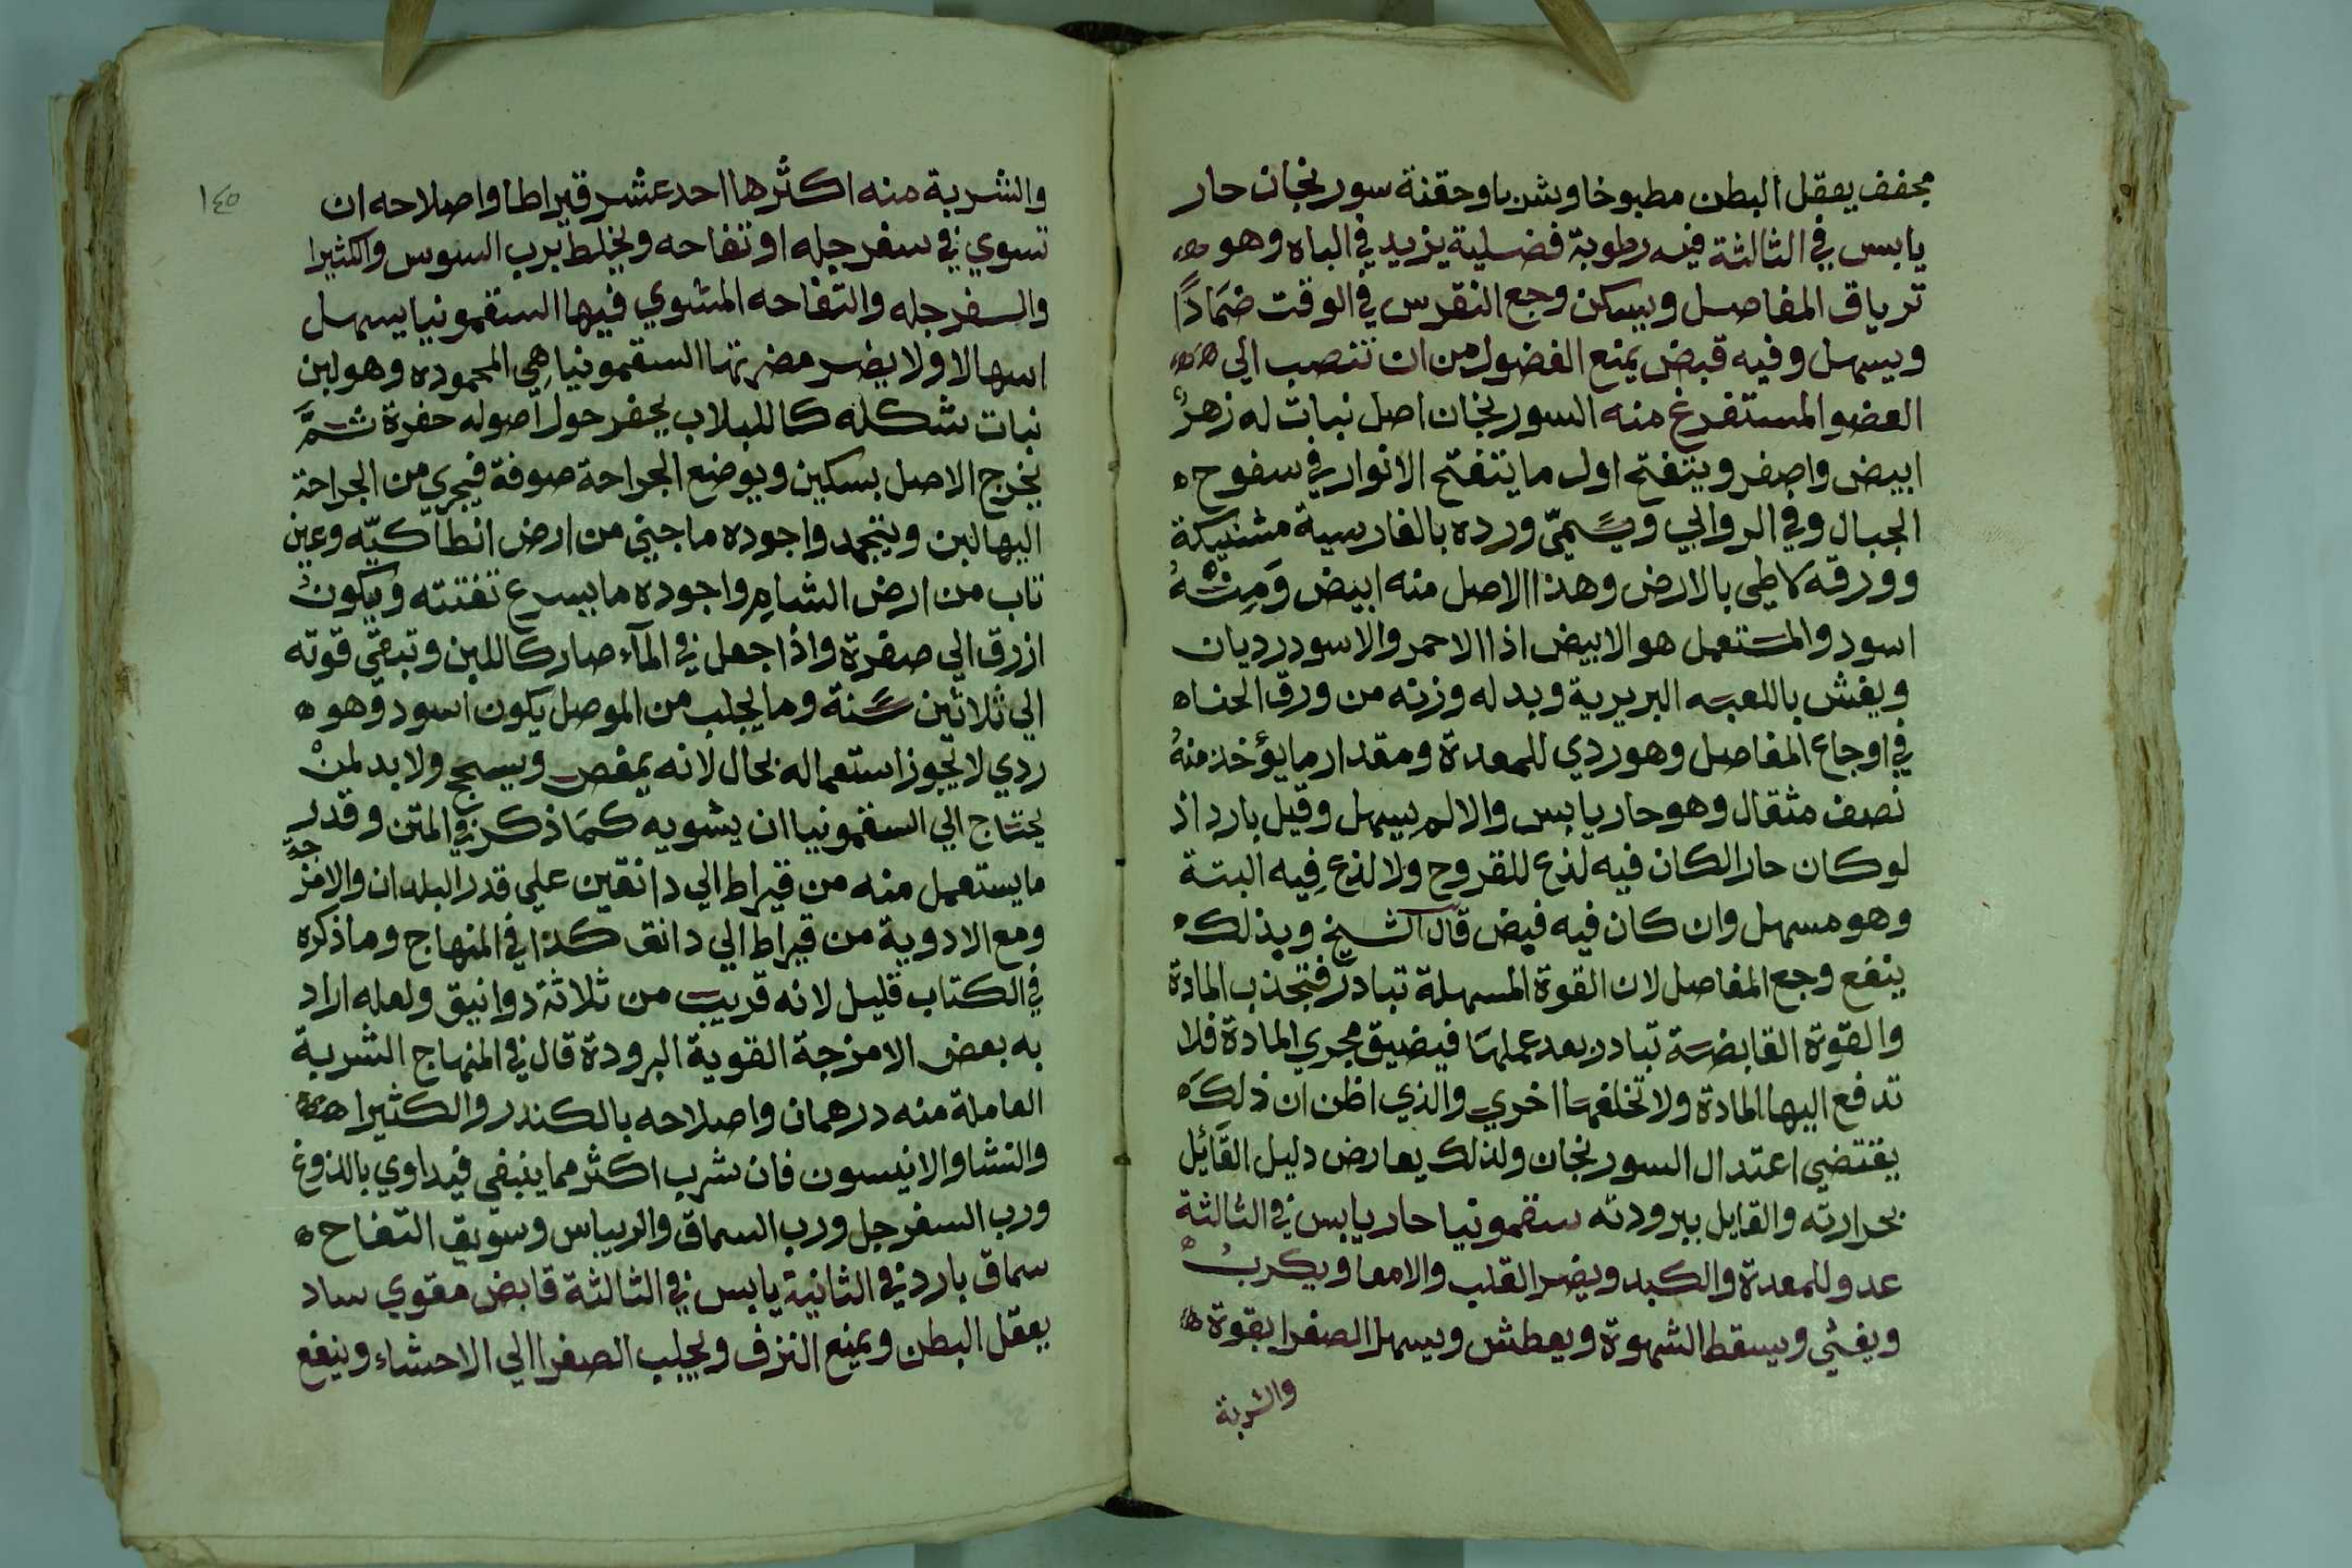 مجفف يعقل البطن مطبوخا وشربا وحقنة سورنجان حار
يابس في الثالثة فيه رطوبة فضلية يزيد في الباه وهو
ترياق المفاصل ويسكن وجع النقرس في الوقت ضمَادًا
ويسهل وفيه قبض يمنع الفضول من ان تنصب الى
العضو المستفرغ منه السورنجان اصل نبات له زهرٌ
ابيض واصفر ويتفتح اول ما يتفتح الانوار في سفوح
الجبال وفي الروابي ويسَمىّ ورده بالفارسية
وورقه لاطى بالارض وهذا الاصل منه ابيض وَمِنْهُ
اسود والمستعمل هو الابيض اذا الاحمر والاسود رديان
ويغش باللعبه البريرية وبدله وزنه من ورق الحنا
في اوجاع المفاصل وهو ردي للمعدة ومقدار ما يؤخذ منهُ
نصف مثقال وهو حار يابس والا لم يسهل وقيل بارد اذ
لو كان حارا لكان فيه لذع للقروح ولا لذع فِيه البتة
وهو مسهل وان كان فيه قبض قال الشيخ وبذلك
ينفع وجع المفاصل لان القوة المسهلة تبادر فتجذب المادة
والقوة القابضة تبادر بعد عملها فيضيق مجري المادة فلا
تدفع اليها المادة ولا تخلفها اخري والذي اظن ان ذلكَ
يقتضي اعتدال السورنجان ولذلك يعارض دليل القَايُل
بحرارته والقايل ببرودته سقمونيا حار يابس في الثالثة
عدو للمعدة والكبد ويضر القلب والامعا ويكربُ
ويغثي ويسقط الشهوة ويعطش ويسهل الصفرا بقوة
والشربة
١٤٥
والشربة منه اكثرها احد عشر قيراطا واصلاحه ان
تسوي في سفرجله او تفاحه ويخلط برب السوس والكثيرا
والسفرجله والتفاحه المشوي فيها السقمونيا يسهل
اسهالا ولا يضر مضرتها السقمونيا هِي المحموده وهو لبن
نبات شكله كاللبلاب يحفر حول اصوله حفرة ثمَّ
يخرج الاصل بسكين ويوضع الجراحة صوفة فيجري من الجراحة
اليها لبن ويتجمد واجوده ما جبي من ارض انطاكيّه وعين
تاب من ارض الشام واجوده ما يسرع تفتته ويكونُ
ازرق الي صفرة واذا جعل في المآء صار كاللبن وتبقّى قوته
الي ثلاثين سَنة وما يجلب من الموصل يكون اسود وهو
ردي لا يجوز استعماله بحال لانه يمغص ويسحج ولا بد لمنْ
يحتاج الي السقمونيا ان يشويه كمَا ذكر في المتن وقدر
ما يستعمل منه من قيراط الي دانقين علي قدر البلدان والامزجة
ومع الادوية من قيراط الي دانق كذا في المنهاج وما ذكره
في الكتاب قليل لانه قريب من ثلاثة دوانيق ولعله اراد
به بعض الامزجة القوية البرودة قال في المنهاج الشربة
العاملة منه درهمان واصلاحه بالكندر والكثيرا
والنشا والانيسون فان شرب اكثر مما ينبغي فيداوي بالدوغ
ورب السفرجل ورب السماق والريباس وسويق التفاح
سماق بارد في الثانية يابس في الثالثة قابض مقوي ساد
يعقل البطن ويمنع النزف ويجلب الصفرا الي الاحشاء وينفع